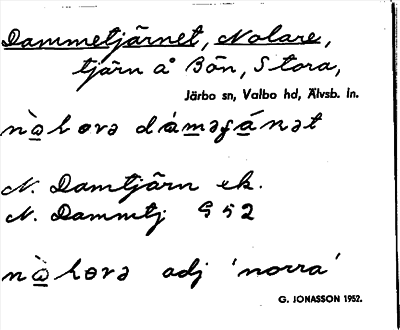 Dammetjärnet, Nolare,
tjärn å Bön, Stora,
Järbo sn, Valbo hd, Älvsb. ln.
N. Damtjärn ek.
N. Dammtj G 52
adj 'norra'
G. JONASSON 1952.